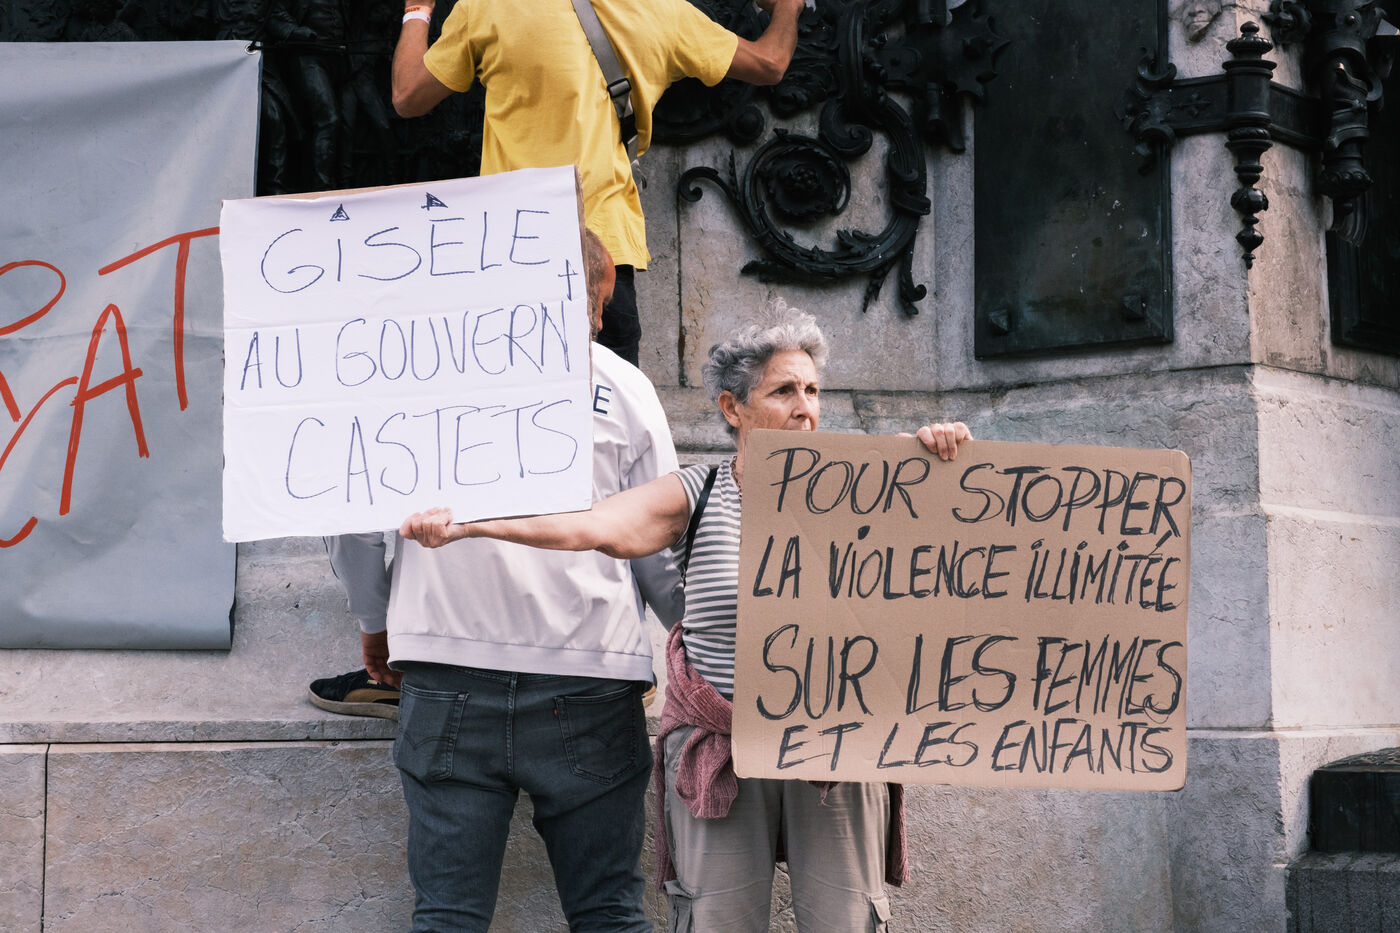 GISÈLE
AU GOUVERN
CASTETS
POUR STOPPER
LA VIOLENCE ILLIMITÉE
SUR LES FEMMES
ET LES ENFANTS